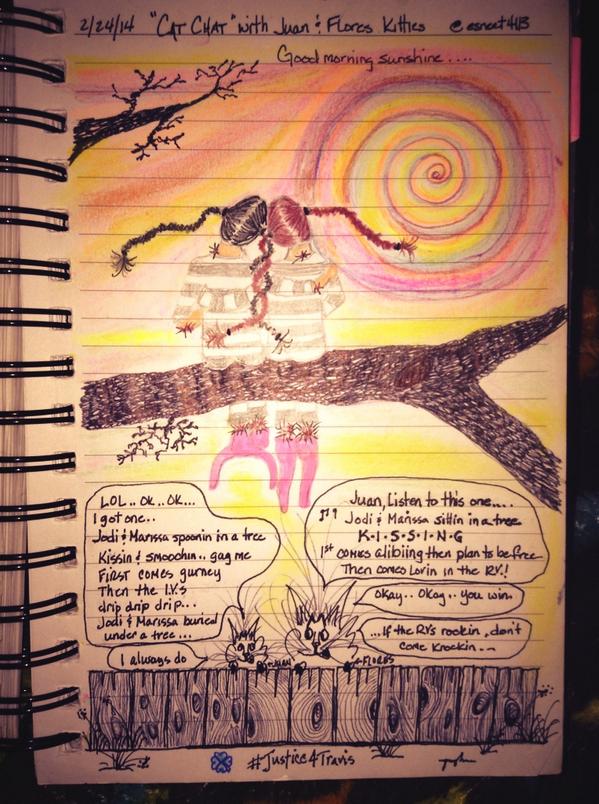 2/24/14 "CAT CHAT" with Juan & Flores Kitties @esneet413
Good morning sunshine....
LOL.. OK.. OK...
I got one..
Jodi & Marissa spoonin in a tree
Kissin & smoochin.. gag me
FIRST comes gurney
Then the I.V.s
drip drip drip...
Jodi & Marissa buried
under a tree...
Juan, Listen to this one....
Jodi & Marissa Sittin in a tree
K•I•S•S•I•N•G
1st comes alibiing then plan to be free
Then comes Lovin in the RV.!
Okay.. Okay.. you win.
...If the RV's rockin, don't
come knockin...
I always do
JUAN
FLORES
#Justice4Travis